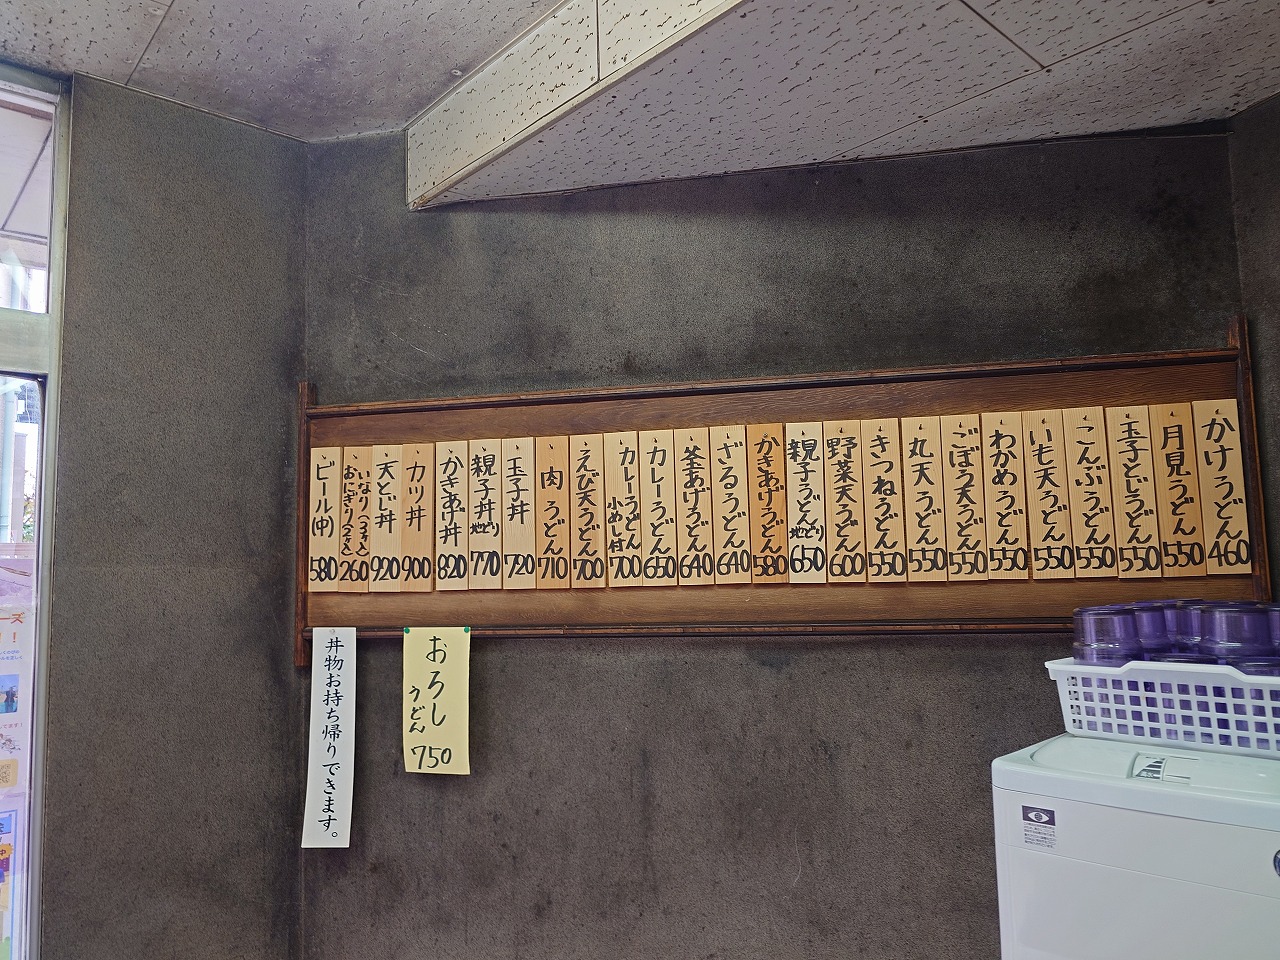 かけうどん 460
月見うどん 550
玉子とじうどん 550
こんぶうどん 550
いも天うどん 550
わかめうどん 550
ごぼう天うどん 550
丸天うどん 550
きつねうどん 550
野菜天うどん 600
親子うどん 地どり 650
かきあげうどん 580
ざるうどん 640
釜あげうどん 640
カレーうどん 650
カレーうどん 小めし付 700
えび天うどん 700
肉うどん 710
玉子丼 720
親子丼 地どり 770
かきあげ丼 820
カツ丼 900
天とじ丼 920
いなり(3ヶ入)
おにぎり(2ヶ入)
260
ビール(中) 580
おろし
うどん
750
丼物お持ち帰りできます。